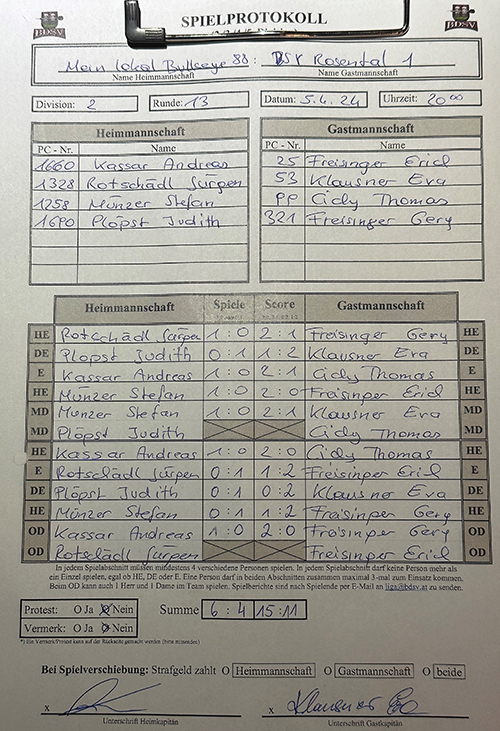 BDSV SPIELPROTOKOLL BDSV
Mein lokal Bullseye 88 : BSV Rosental 1
Name Heimmannschaft Name Gastmannschaft
Division: 2 Runde: 13 Datum: 5.4.24 Uhrzeit: 20 00
Heimmannschaft Gastmannschaft
PC - Nr. Name PC - Nr. Name
1660 Kassar Andreas 25 Freisinger Erich
1328 Rotschädl Jürgen 53 Klausner Eva
1258 Münzer Stefan PP Cidy Thomas
1670 Plöpst Judith 321 Freisinger Gery
Heimmannschaft Spiele Score Gastmannschaft
HE Rotschädl Jürgen 1 : 0 2 : 1 Freisinger Gery HE
DE Plöpst Judith 0 : 1 1 : 2 Klausner Eva DE
E Kassar Andreas 1 : 0 2 : 1 Cidy Thomas E
HE Münzer Stefan 1 : 0 2 : 0 Freisinger Erich HE
MD Münzer Stefan 1 : 0 2 : 1 Klausner Eva MD
MD Plöpst Judith Cidy Thomas MD
HE Kassar Andreas 1 : 0 2 : 0 Cidy Thomas HE
E Rotschädl Jürgen 0 : 1 1 : 2 Freisinger Erich E
DE Plöpst Judith 0 : 1 0 : 2 Klausner Eva DE
HE Münzer Stefan 0 : 1 1 : 2 Freisinger Gery HE
OD Kassar Andreas 1 : 0 2 : 0 Freisinger Gery OD
OD Rotschädl Jürgen Freisinger Erich OD
In jedem Spielabschnitt müssen mindestens 4 verschiedene Personen spielen. In jedem Spielabschnitt darf keine Person mehr als
ein Einzel spielen, egal ob HE, DE oder E. Eine Person darf in beiden Abschnitten zusammen maximal 3-mal zum Einsatz kommen.
Beim OD kann auch 1 Herr und 1 Dame im Team spielen. Spielberichte sind nach Spielende per E-Mail an liga@bdsv.at zu senden.
Protest: O Ja O Nein Summe 6 : 4 15 : 11
Vermerk: O Ja O Nein
*) Ein Vermerk/Protest kann auf der Rückseite gemacht werden (bitte ankreuzen)
Bei Spielverschiebung: Strafgeld zahlt O Heimmannschaft O Gastmannschaft O beide
x x Klausner Eva
Unterschrift Heimkapitän Unterschrift Gastkapitän